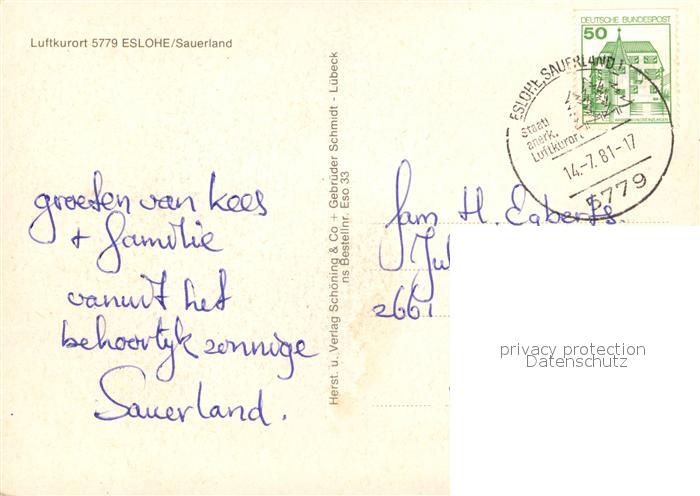 Luftkurort 5779 ESLOHE/Sauerland
groeten van Kees
+ familie
vanuit het
behoorlyk zonnige
Sauerland.
Herst. u. Verlag Schöning & Co + Gebrüder Schmidt - Lübeck
ns Bestellnr. Eso 33
DEUTSCHE BUNDESPOST
50
ESLOHE, SAUERLAND 1
Staatl
anerk.
Luftkurort
14.-7.81-17
5779
fam H. Egberts.
Jul
2661
privacy protection
Datenschutz